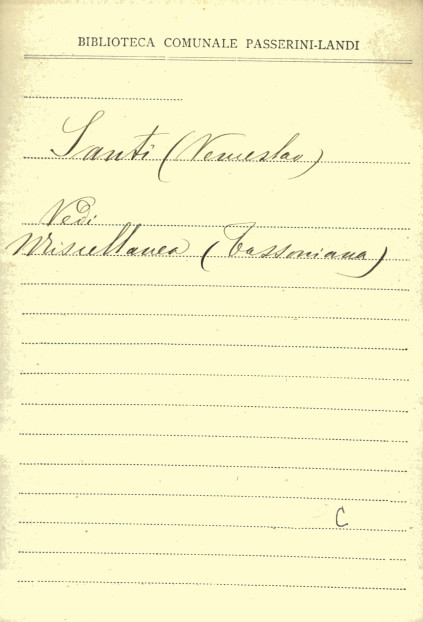 BIBLIOTECA COMUNALE PASSERINI-LANDI
Santi (Venceslao)
Vedi
Miscellanea (Tassoniana)
C